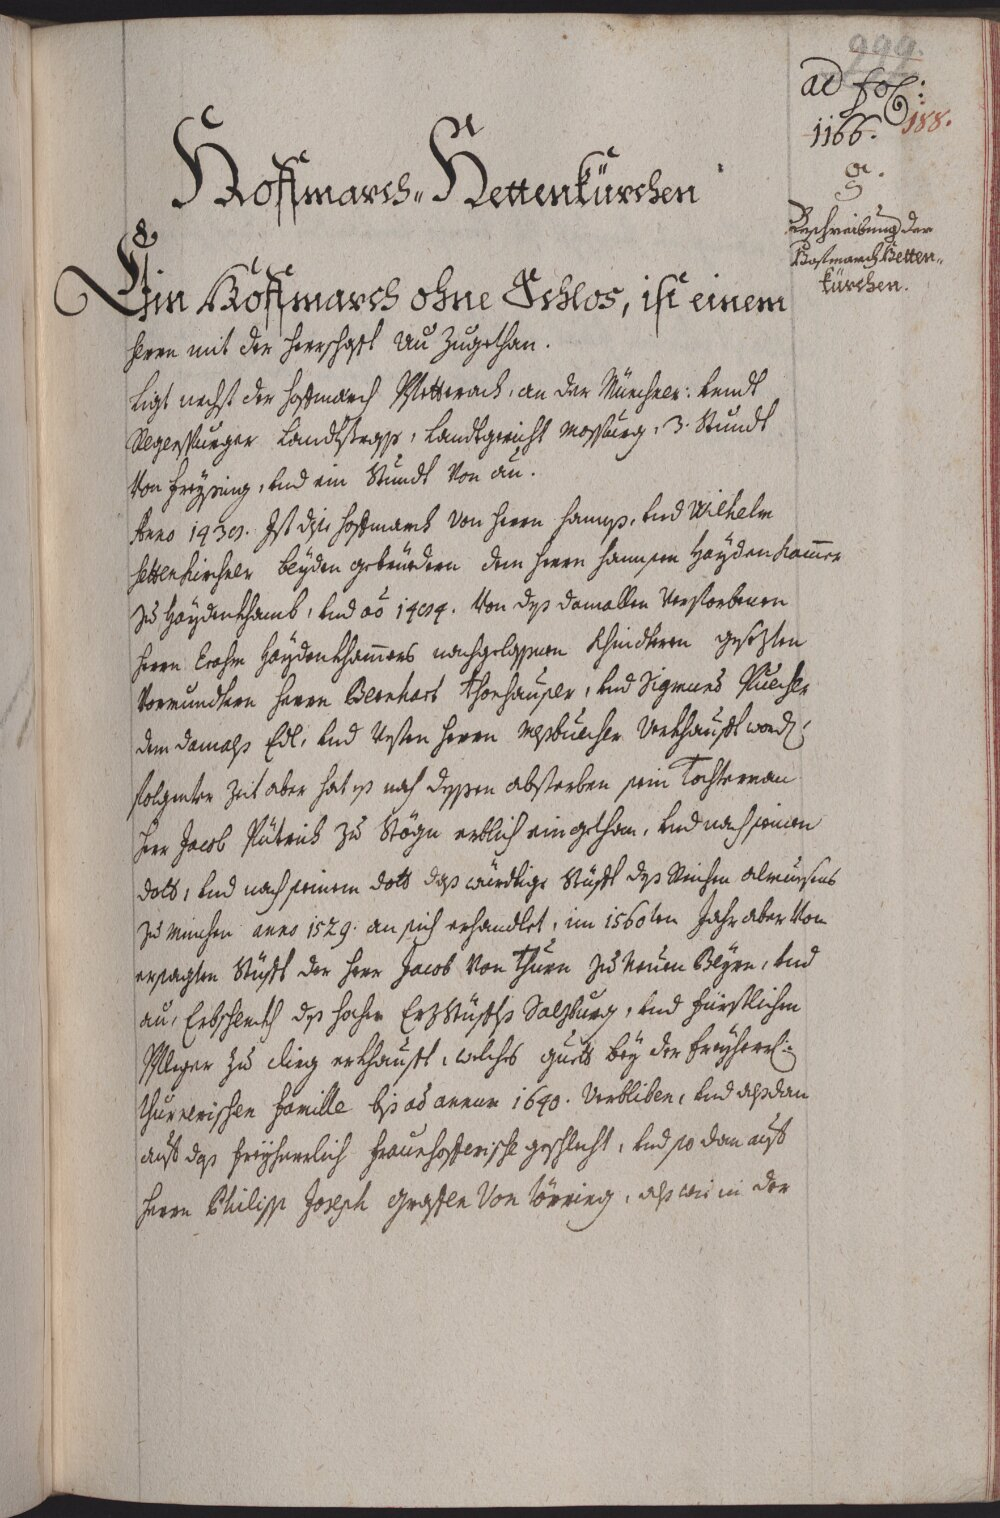 999.
ad fol:
1166. 188.
g.
Beschreibung der
Hofmarch Hetten-
kürchen.
Hoffmarch Hettenkürchen
Ein Hoffmarch ohne Schlos, ist einem
herrn mit der herrschafft Au Zugethan.
ligt nechst der hoffmarch, an der Münchner: vndt
Regenspurger Landtstrass, Landtgericht Mosburg, 3. Stundt
Von Freysing, vnd ein Stundt Von au.
Anno 1439. Ist dise hoffmarch Von herrn hannss, vnd Wilhelm
hettenkircher beyden gebrüedern dem herrn hannsen Haydenkammer
zu Haydenkhamb, vnd ao 1494. Von dess damallen Verstorbenen
herrn Haydenkhamers nachgelassnen Khindtern gesezten
Vormundtern herrn Bernhart Thorhauser, vnd Sigmund Puecher
dem damals Edl, vnd Vesten herrn Verkhaufft word:
folgenter Zeit aber hat es nach dessen absterben sein Tochterman
herr Jacob Pütrich zu Stögn erblich eingethan, vnd nach seinem
dott, vnd nach seinem dott das würdtige Stüfft des Reichen almuesens
zu München anno 1529. an sich erhandlet, im 1560ten Jahr aber Von
ersagten Stüfft der herr Jacob Von Thurn zu Neuen Beyrn, vnd
au, Erbschenkh des hohen ErzStüffts Salzburg, vnd Fürstlichen
Pfleger zu erkhaufft, welches guett bey der Freyherrl:
thurnerischen famille biss ad annum 1640. Verbliben, vnd alsdan
auf das freyherrlich fraunhofferische geschlecht, vnd so dan auf
herrn Philipp Joseph Graffen Von Törring, alss wie in der